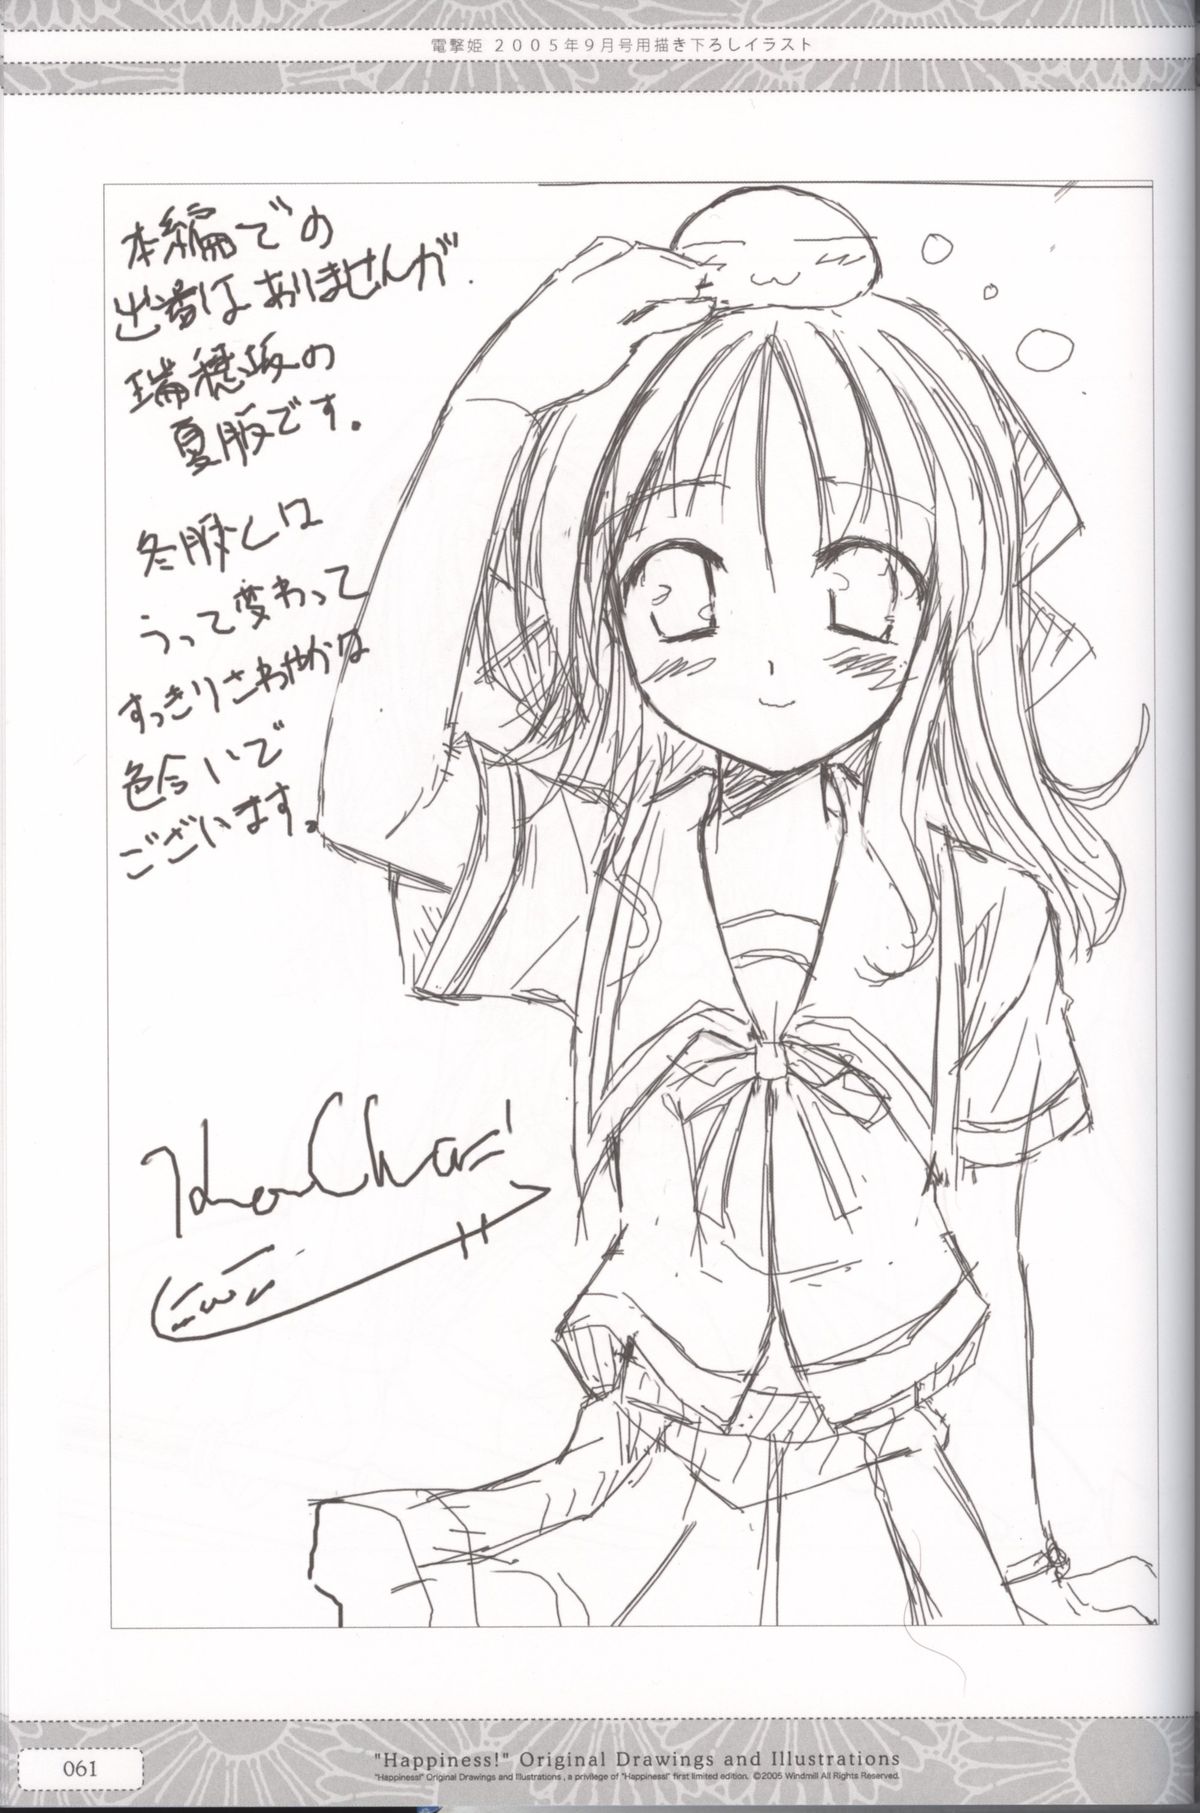 電撃姫 2005年9月号用描き下ろしイラスト
本編での
出番はありませんが
瑞穂坂の
夏服です。
冬服とは
うって変わって
すっきりさわやかな
色合いで
ございます。
061
"Happiness!" Original Drawings and Illustrations
"Happiness!" Original Drawings and Illustrations , a privilege of "Happiness!" first limited edition. ©2005 Windmill All Rights Reserved.